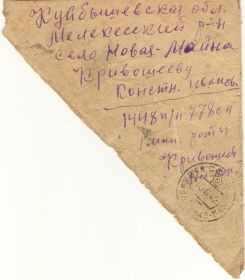 Куйбышевская обл.
Мелекесский р-н
село Новая-Майна
Кривошееву
Констн. Ивансв.
1448 п/п 778 сп
1 мин. роты
Кривошеев